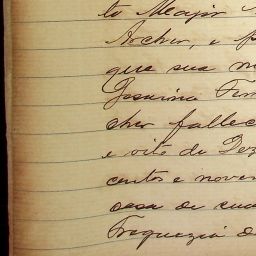 to Major
Archer, e p
que sua m
Josuina Fer
cher fallec
e oito de Dez
centos e noven
casa de sua
Freguezia d